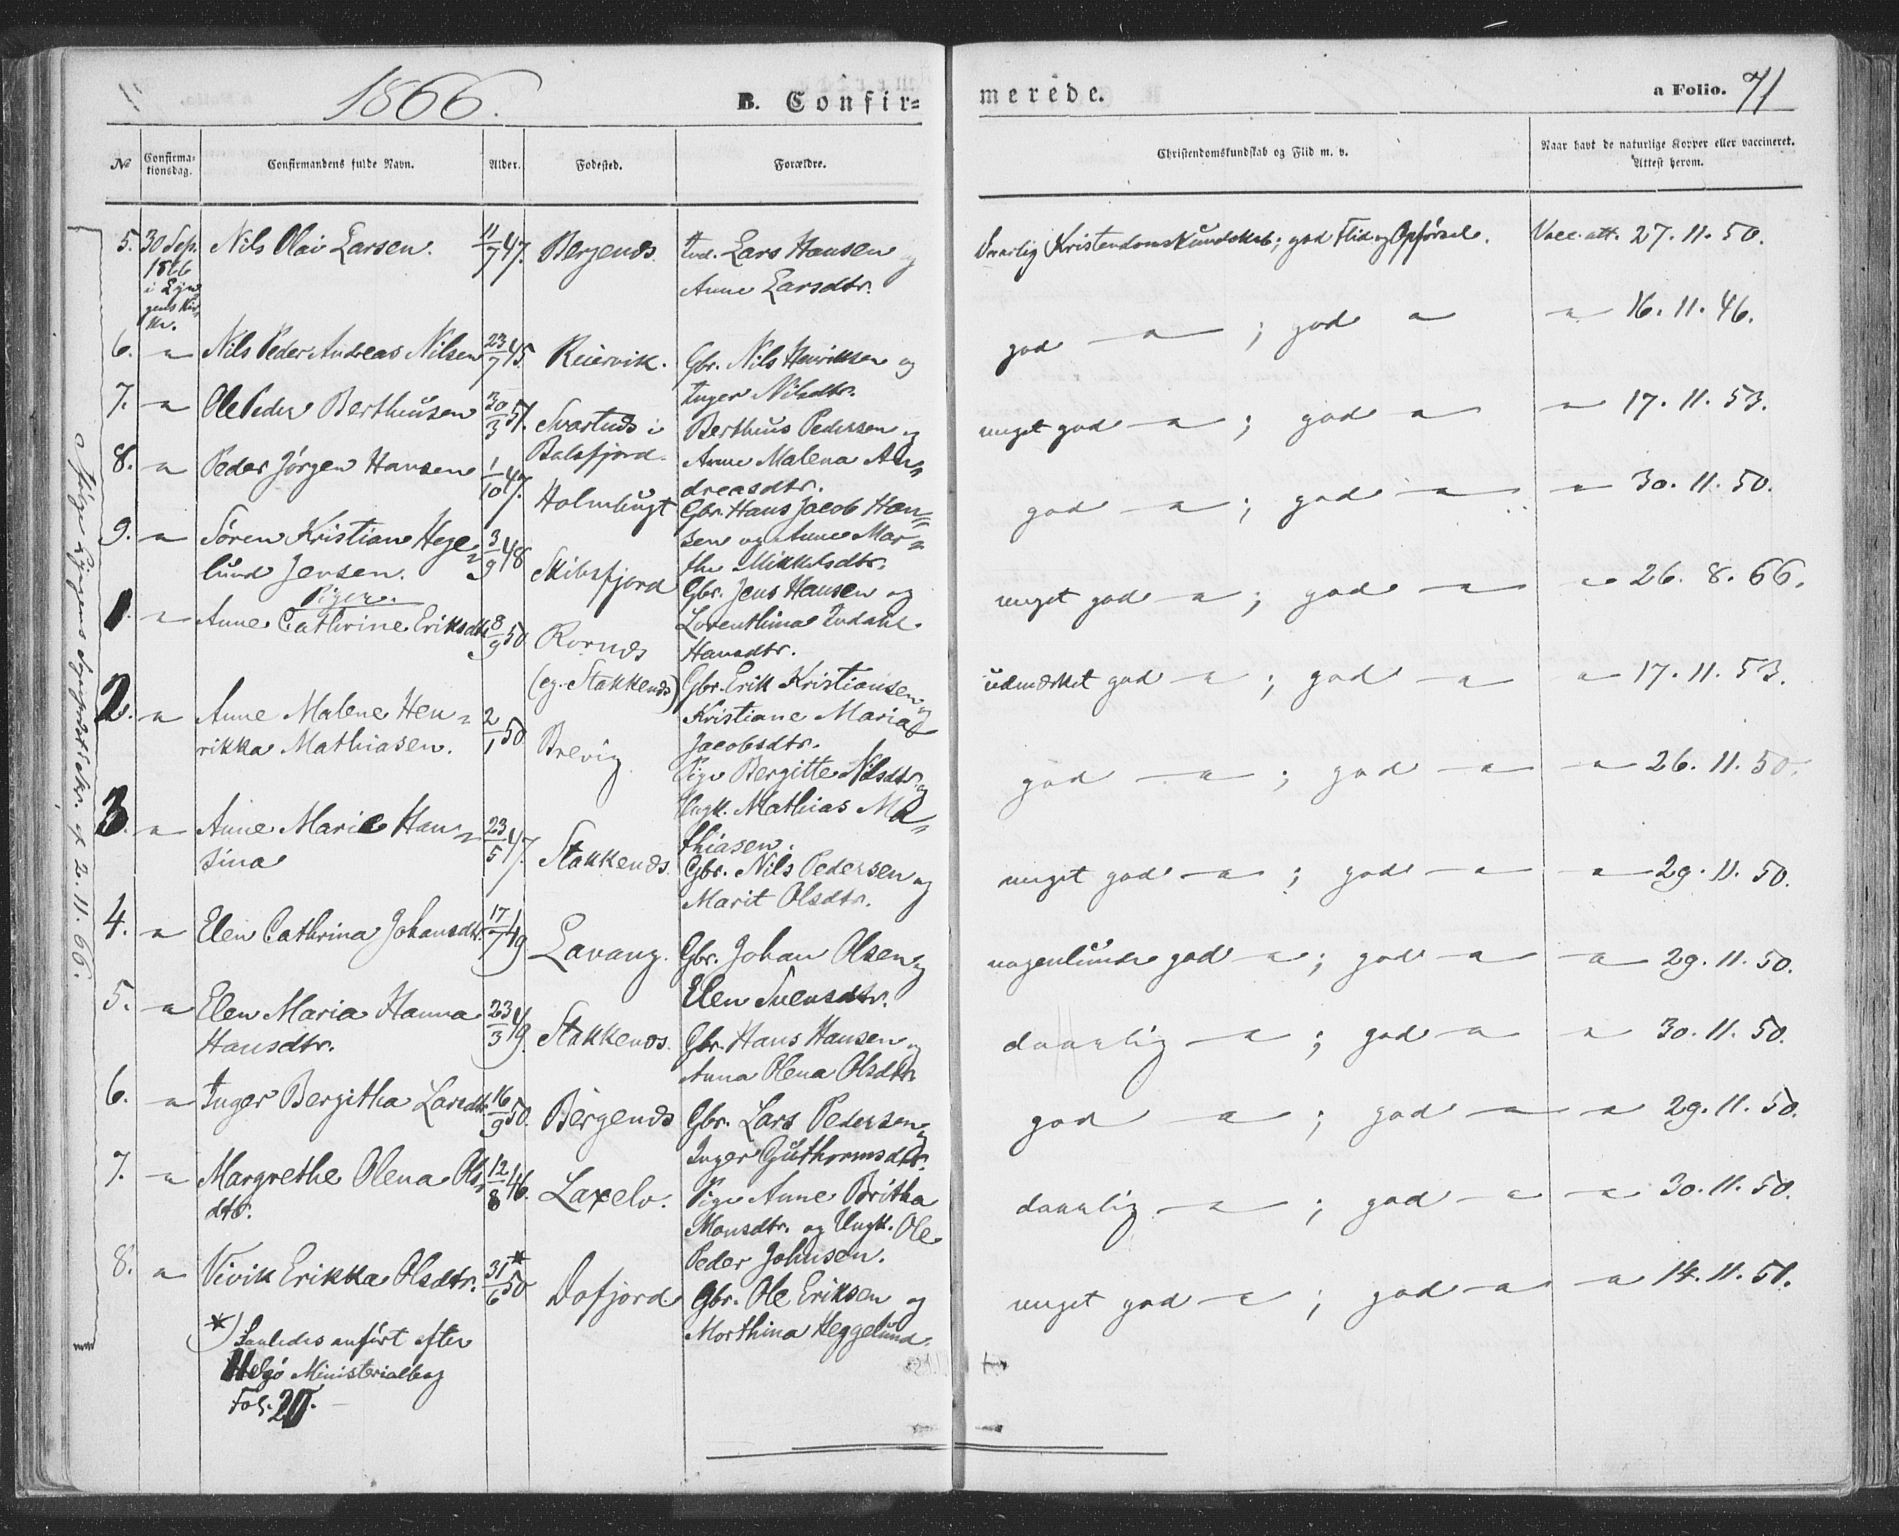 1866.
B. Confir=
merede.
a Folio. 71
№
Confirma-
tionsdag.
Confirmandens fulde Navn.
Alder.
Fødested.
Forældre.
Christendomskundskab og Flid m. v.
Naar havt de naturlige Kopper eller vaccineret.
Attest herom.
5. 30 Sep. Nils Olai Larsen. 11/7 47. Bergenæs. Ind. Lars Hansen og
1866
Anne Larsdtr.
Daarlig Kristendomskundskab; god Flid og Opførsel. Vacc. att. 27.11.50.
6. " Nils Peder Andreas Nilsen 23/7 45. Reiervik. Gbr. Nils Henriksen og
Inger Nilsdtr.
god " ; god " " 16.11.46.
7. " Ole Peder Bertheusen 30/3 51. Svartnæs i
Balsfjord.
Bertheus Pedersen og
Anne Malena An=
dreasdtr.
meget god " ; god " " 17.11.53.
8. " Peder Jørgen Hansen 1/10 47. Holmbugt
Gbr. Hans Jacob Han=
sen og Anne Mar=
the Mikkelsdtr.
god " ; god " " 30.11.50.
9. " Søren Kristian Hege=
lund Jensen. 3/9 48 Skibsfjord
Gbr. Jens Hansen og
Lorenthina
Hansdtr.
meget god " ; god " " 26.8.66.
Piger.
1. " Anne Cathrine Eriksdtr. 8/9 50 Rornæs
(eg. Stakkenæs)
Gbr. Erik Kristiansen og
Kristiane Maria
Jacobsdtr.
udmærket god " ; god " " 17.11.53.
2. " Anne Malene Hen=
rikka Mathiasen. 2/1 50 Brevig
Pige Bergitte Nilsdtr. og
Ungk. Mathias Ma=
thiasen.
god " ; god " " 26.11.50.
3. " Anne Marie Han=
sina 23/5 47. Stakkenæs.
Gbr. Nils Pedersen og
Marit Olsdtr.
meget god " ; god " " 29.11.50.
4. " Elen Cathrina Johansdtr. 17/7 49 Lavang.
Gbr. Johan Olsen og
Elen Svensdtr.
nogenlunde god " ; god " " 29.11.50.
5. " Elen Maria Hanna
Hansdtr. 23/3 49. Stakkenæs.
Gbr. Hans Hansen og
Anna Olena Olsdtr.
daarlig " ; god " " 30.11.50.
6. " Inger Bergitha Larsdtr. 16/9 50. Bergenæs
Gbr. Lars Pedersen og
Inger Guthormsdtr.
god " ; god " " 29.11.50.
7. " Margrethe Olena Ols=
dtr. 12/8 46. Laxelv.
Pige Anne Britha
Monsdtr. og Ungk. Ole
Peder Johnsen.
daarlig " ; god " " 30.11.50.
8. " Vivik Erikka Olsdtr. 31/6 50 * Dofjord
Gbr. Ole Eriksen og
Morthina Heggelund.
meget god " ; god " " 14.11.51.
*) Saaledes anført efter
Helgø Ministerialbog
Fol. 20.